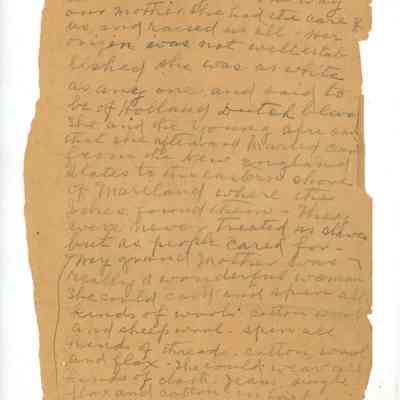 our mother. She had the care of
us, and raised us all. her
origin was not well estab
lished she was as white
as any one and said to
be of Holland Dutch blood
She and the young african
that she afterward married came
from the New england
states to the eastern shore
of Mareland where the
Jones found them - They
were never treated as slaves
but as people cared for -
My grand Mother was
really a wonderful woman
She could card and spin all
kinds of wool: cotton wool
and sheep wool - spin all
kinds of threads. cotton, wool
and flax - She could weave all
kinds of cloth. Jeans, single
flax and cotton